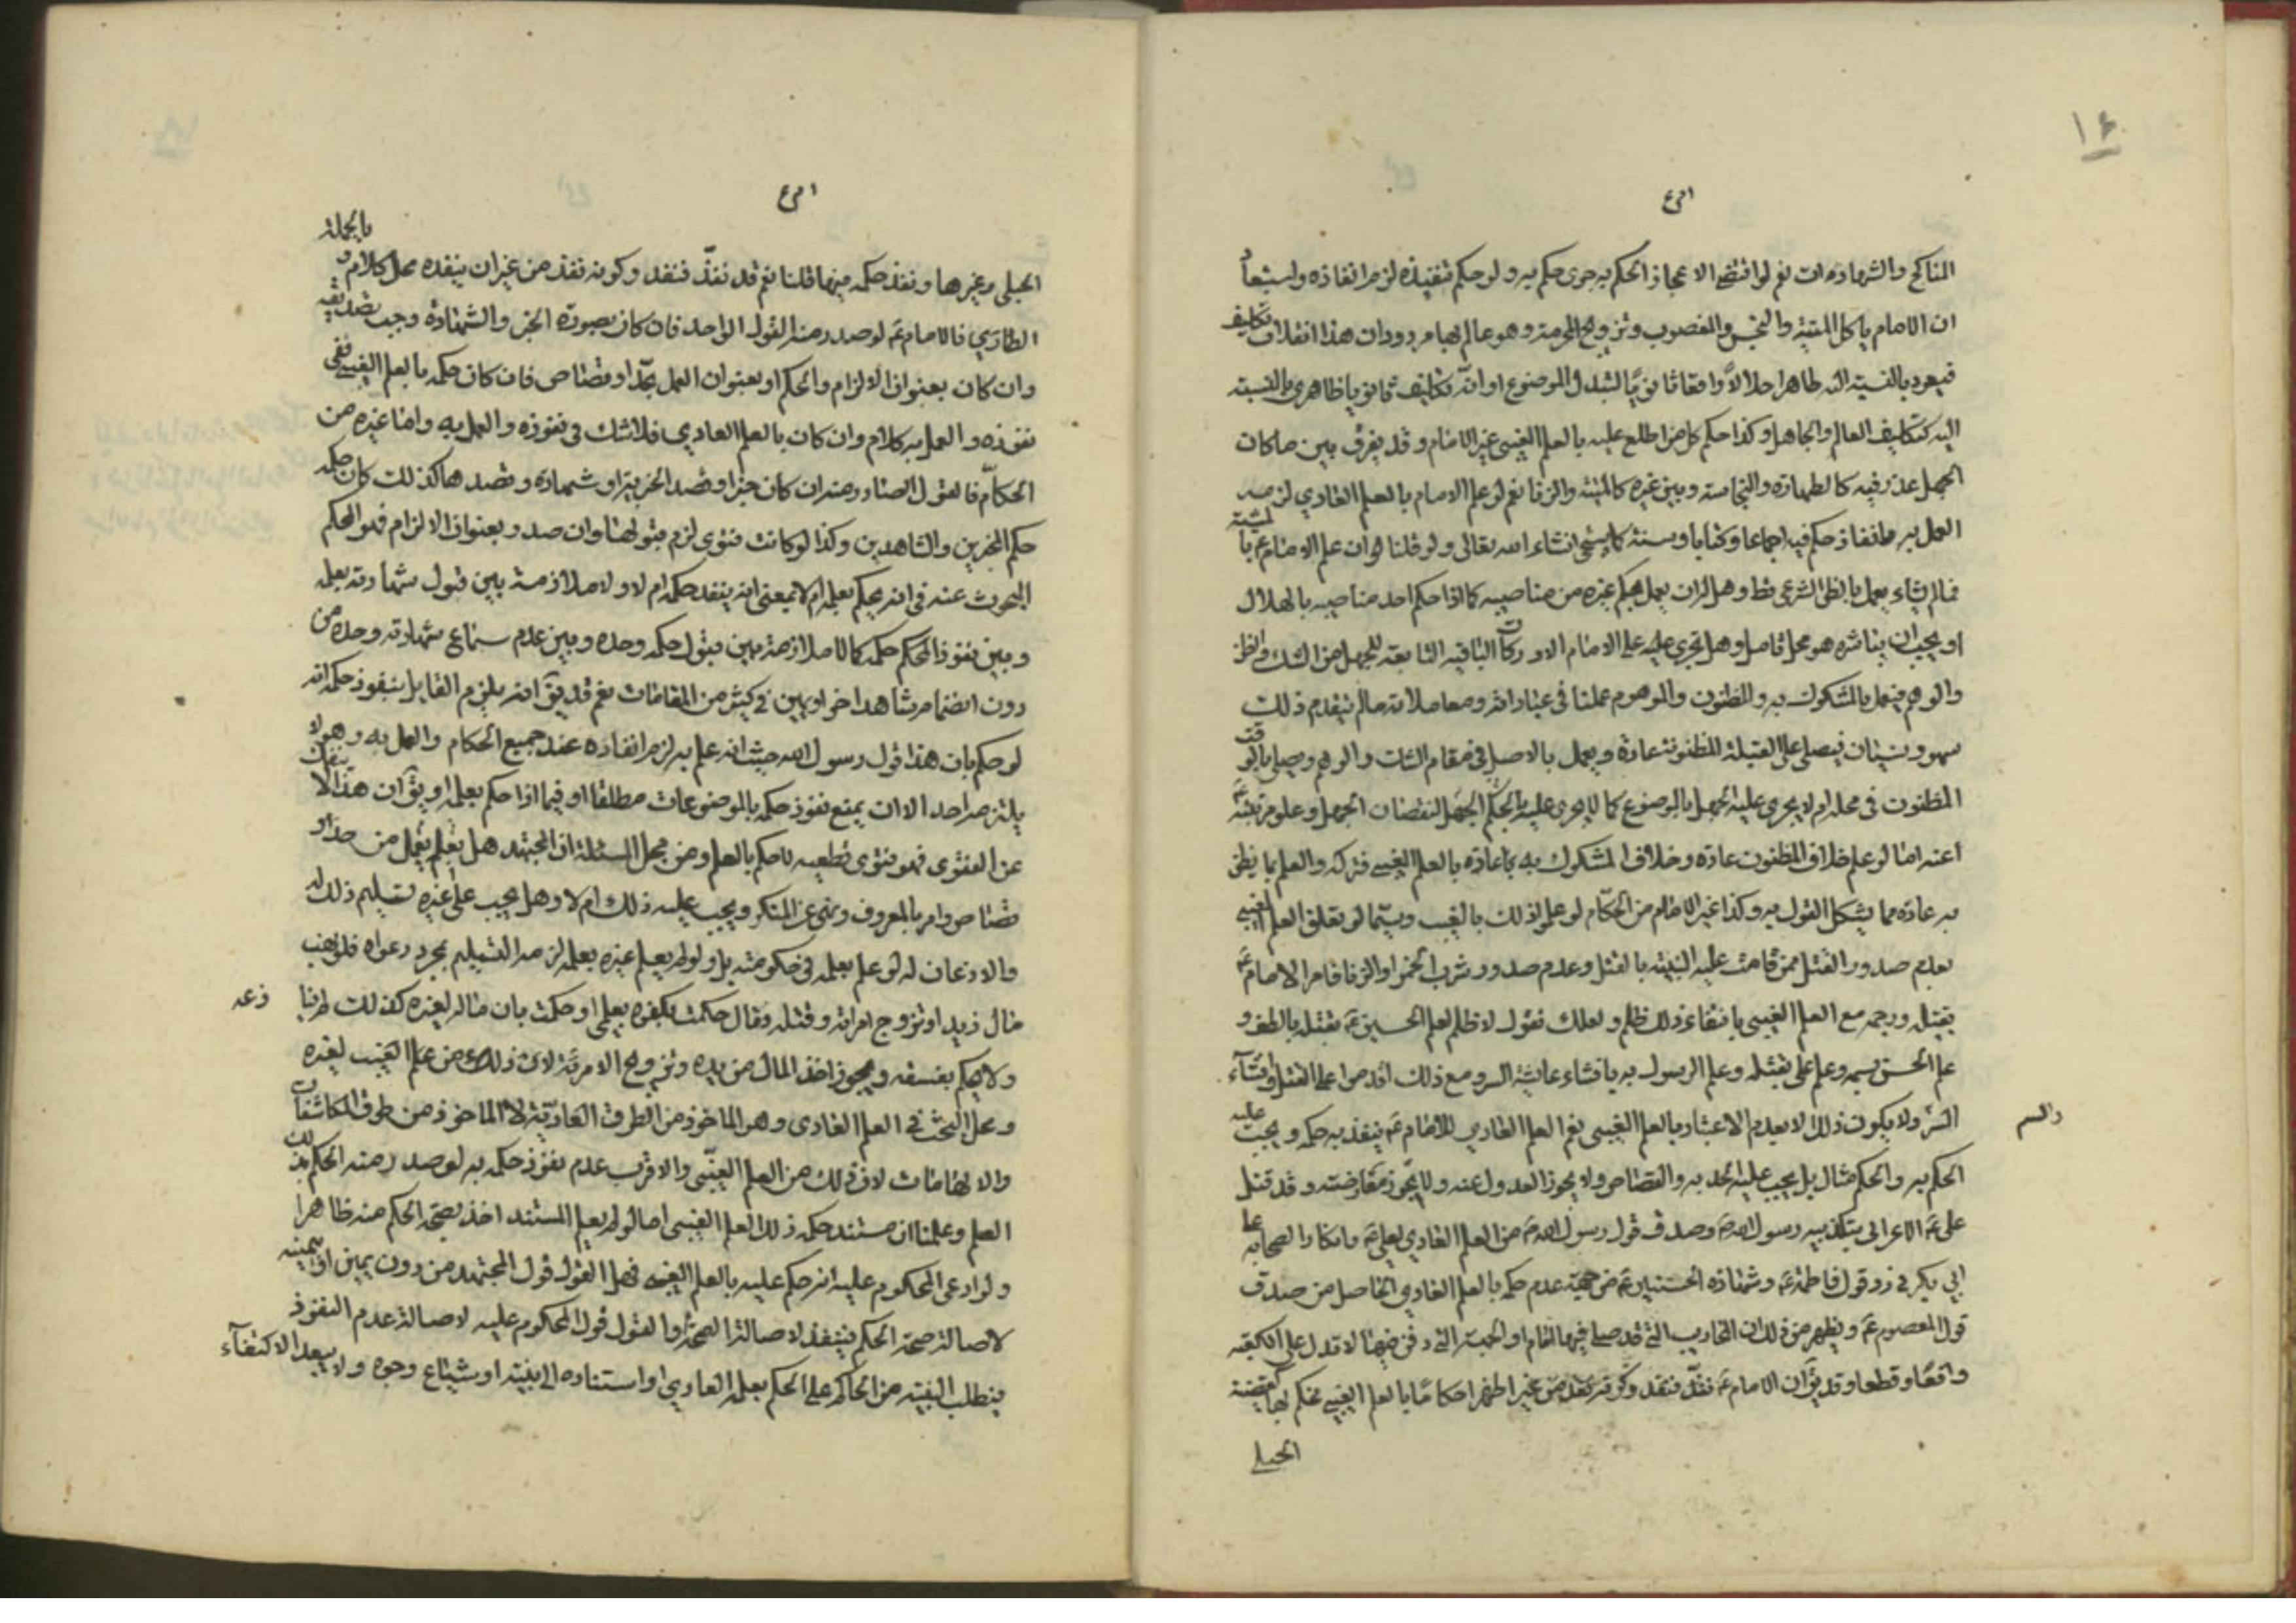 ١٤
المناكح والشهادات نعم لو اقتضى الاعجاز الحكم به جرى حكم به ولو حكم بتنفيذه لزم انفاذه واستبعاد
ان الامام ياكل الميتة والنجس والمغصوب وتزويج المحرمة وهو عالم بها مردود ان هذا انقلاب تكليف
فيعود بالنسبة اليه طاهرا حلالا واقعا ثانويا لتبدل الموضوع او انه تكليف ثانوي ظاهري بالنسبة
اليه كتكليف العالم والجاهل وكذا حكم كل من اطلع عليه بالعلم الغيبي غير الامام وقد يفرق بين ما كان
الجهل عذر فيه كالطهارة والنجاسة وبين غيره كالميتة والزنا نعم لو علم الامام بالعلم العادي لزمه
العمل به وانفاذ حكم فيه اجماعا وكتابا وسنة كما سيجئ انشاء الله تعالى ولو قلنا ان علم الامام ع بالمشية
فما لم يشاء يعمل بالظن الشرعي قط وهل له ان يعمل بحكم غيره من مناصبيه كما اذا حكم احد مناصبيه بالهلال
او يجب ان يباشره هو محل تامل وهل تجري عليه على الامام الادراكات الباقية التابعة للجهل من الشك والظن
والوهم فيعمل بالمشكوك به والمظنون والموهوم عملنا في عباداته ومعاملاته ما لم يتقدم ذلك
سهو ونسيان فيصلي على القبلة المظنونة عادة ويعمل بالاصل في مقام الشك والوهم ويصلي بالوقت
المظنون في محله ام لا يجري عليه الجهل بالموضوع كما لا يجري عليه بالحكم الجهل لنقصان الجهل وعلو مرتبته
اعنه اما لو علم خلاف المظنون عادة وخلاف المشكوك به عادة بالعلم الغيبي فتركه والعلم بما يظن
به عادة مما يشكل القول به وكذا غير الامام من الحكام لو علموا ذلك بالغيب وسيما لو تعلق العلم الغيبي
بعدم صدور القتل ممن قامت عليه البينة بالقتل وعدم صدور شرب الخمر او الزنا فامر الامام ع
بقتله ورجمه مع العلم الغيبي بانتفاء ذلك ظلم ولعلك تقول لا ظلم لعلم الحسين ع بقتله بالطف و
علم الحسن بسمه وعلم علي بقتله وعلم الرسول به بافشاء عايشة السر ومع ذلك اقدموا على القتل وافشاء
والسم
السر ولا يكون ذلك الا بعدم الاعتبار بالعلم الغيبي نعم العلم العادي للامام ع ينفذ به حكمه ويجب عليه
الحكم به والحكم مثال بل يجب عليه الحد به والقصاص ولا يجوز العدول عنه ولا يجوز معارضته وقد قتل
علي ع الاعرابي بتكذيبه رسول الله ص وصدق قول رسول الله ص من العلم العادي لعلي ع وانكار الصحابة على
ابي بكر في رد قول فاطمة ع وشهادة الحسنين ع من جهة عدم حكمه بالعلم العادي الحاصل من صدق
قول المعصوم ع ويظهر من ذلك ان المحاريب التي قد صلى فيها الامام او الجهة التي دفن فيها لا تدل على الكعبة
واقعا وقطعا وقد يق ان الامام ع نفذ فنفذ وكونه نفذ من غير اظهر احكاما بالعلم الغيبي فحكم بها كقضية
الحبلى
بالجملة
الحبلى وغيرها ونفذ حكمه فيها قلنا نعم قد نفذ فنفذ وكونه نفذ من غير ان ينفذه محل كلام و
الطاري فالامام ع لو صدر منه القول الواحد فان كان بصورة الخبر والشهادة وجب تصديقه
وان كان بعنوان الالزام والحكم او بعنوان العمل بحد او قصاص فان كان حكمه بالعلم الغيبي ففي
نفوذه والعمل به كلام وان كان بالعلم العادي فلا شك في نفوذه والعمل به واما غيره من
الحكام فالقول الصادر منه ان كان خبرا وقصد الخبرية او شهادة وقصدها كذلك كان حكمه
حكم المخبرين والشاهدين وكذا لو كانت فتوى لزم قبولها وان صدر بعنوان الالزام فهو الحكم
المبحوث عنه في انه يحكم بعلمه ام لا بمعنى انه ينفذ حكمه ام لا ولا ملازمة بين قبول شهادته بعلمه
وبين نفوذ الحكم حكمه كما لا ملازمة بين قبول حكمه وحده وبين عدم سماع شهادته وحده من
دون انضمام شاهد اخر او يمين في كثير من المقامات نعم قد يق انه يلزم القايل بنفوذ حكمه انه
لو حكم بان هذا قول رسول الله حيث انه علم به لزم انفاذه عند جميع الحكام والعمل به وهو لا
يلتزمه احد الا ان يمنع نفوذ حكمه بالموضوعات مطلقا او فيما اذا حكم بعلمه او يق ان هذا لا ينفك
عن الفتوى فهو فتوى قطعية لا حكم بالعلم ومن محل المسئلة ان المجتهد هل بعلم يعمل من حد او
قصاص وامر بالمعروف ونهي عن المنكر ويجب عليه ذلك ام لا وهل يجب على غيره تسليم ذلك له
والاذعان له لو علم بعلمه في حكومته بل ولو لم يعلم غيره بعلمه لزمه التسليم بمجرد دعواه فلو نهب
مال زيد او تزوج امراته وقتله وقال حكمت بكفره بعلمي او حكمت بان ماله لغيره كذلك لم
ولا يحكم بفسقه ويجوز اخذ المال من يده وتزويج الامرئة لان ذلك من علم الغيب لغيره
ومحل البحث في العلم العادي وهو الماخوذ من الطرق العادية لا الماخوذ من طرق المكاشفات
والالهامات لان ذلك من العلم الغيبي والاقرب عدم نفوذ حكمه به لو صدر منه الحكم بذلك
العلم وعلمنا ان مستند حكمه ذلك العلم الغيبي اما لو لم يعلم المستند اخذ بصحة الحكم منه ظاهرا
ولو ادعى المحكوم عليه انه حكم عليه بالعلم الغيبي فهل القول قول المجتهد من دون يمين او بيمينه
لاصالة صحة الحكم فينفذ لاصالة الصحة والقول قول المحكوم عليه لاصالة عدم النفوذ
فيطلب البينة من الحاكم على الحكم بعلمه العادي او استناده الى بينة او شياع وجوه ولا يبعد الاكتفاء